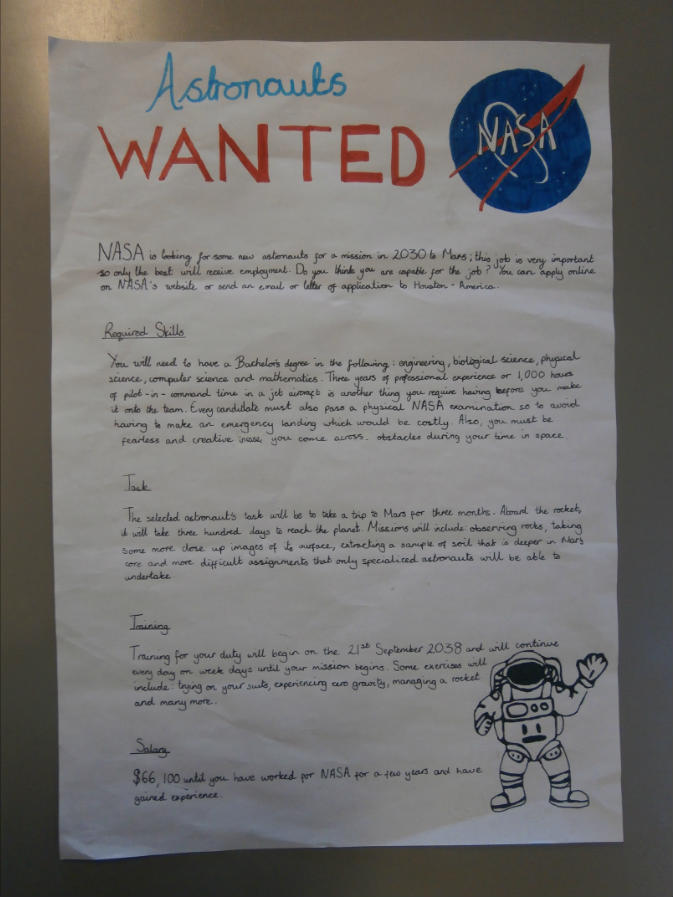 Astronauts
WANTED
NASA
NASA is looking for some new astronauts for a mission in 2030 to Mars; this job is very important
so only the best will receive employment. Do you think you are capable for the job? You can apply online
on NASA's website or send an email or letter of application to Houston - America.
Required Skills
You will need to have a Bachelor's degree in the following: engineering, biological science, physical
science, computer science and mathematics. Three years of professional experience or 1,000 hours
of pilot-in-command time in a jet aircraft is another thing you require having before you make
it onto the team. Every candidate must also pass a physical NASA examination so to avoid
having to make an emergency landing which would be costly. Also, you must be
fearless and creative incase you come across. obstacles during your time in space.
Task
The selected astronaut's task will be to take a trip to Mars for three months. Aboard the rocket,
it will take three hundred days to reach the planet. Missions will include: observing rocks, taking
some more close up images of its surface, extracting a sample of soil that is deeper in Mars'
core and more difficult assignments that only specialized astronauts will be able to
undertake
Training
Training for your duty will begin on the 21st September 2038 and will continue
every day on week days until your mission begins. Some exercises will
include: trying on your suits, experiencing zero gravity, managing a rocket
and many more..
Salary
$66,100 until you have worked for NASA for a few years and have
gained experience.